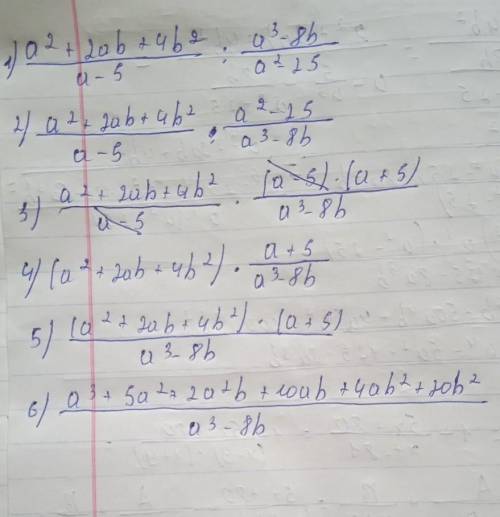 1) (a² + 2ab + 4b²)/(a - 5) : (a³ - 8b)/(a² - 25)
2) (a² + 2ab + 4b²)/(a - 5) · (a² - 25)/(a³ - 8b)
3) (a² + 2ab + 4b²)/(a - 5) · ((a - 5) · (a + 5))/(a³ - 8b)
4) (a² + 2ab + 4b²) · (a + 5)/(a³ - 8b)
5) ((a² + 2ab + 4b²) · (a + 5))/(a³ - 8b)
6) (a³ + 5a² + 2a²b + 10ab + 4ab² + 20b²)/(a³ - 8b)